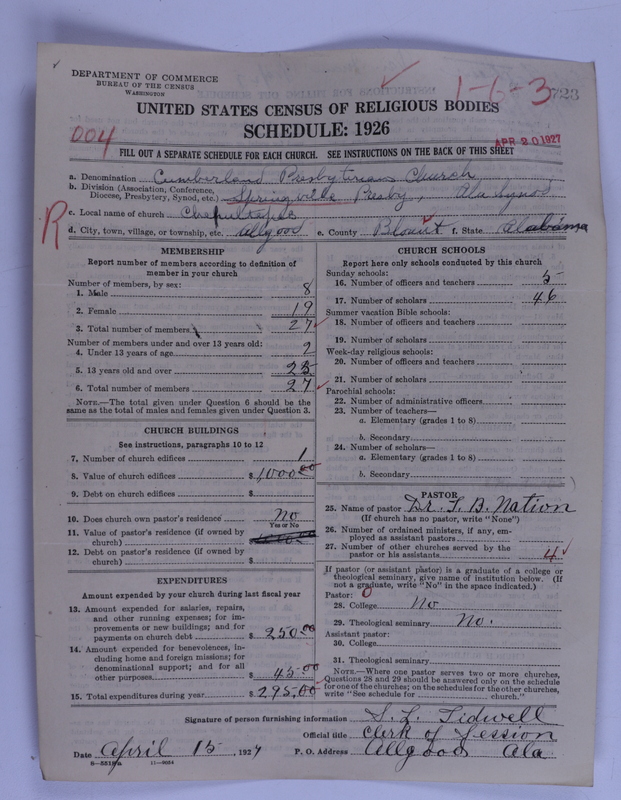 DEPARTMENT OF COMMERCE
BUREAU OF THE CENSUS
WASHINGTON
1-6-3
723
UNITED STATES CENSUS OF RELIGIOUS BODIES
SCHEDULE: 1926
004
APR 20 1927
FILL OUT A SEPARATE SCHEDULE FOR EACH CHURCH. SEE INSTRUCTIONS ON THE BACK OF THIS SHEET
a. Denomination Cumberland Presbyterian Church
b. Division (Association, Conference, Diocese, Presbytery, Synod, etc.) Springville Presby, Ala Synod
R
c. Local name of church Chepultepec
d. City, town, village, or township, etc. Allgood e. County Blount f. State Alabama
MEMBERSHIP
Report number of members according to definition of
member in your church
Number of members, by sex:
1. Male 8
2. Female 19
3. Total number of members 27
Number of members under and over 13 years old:
4. Under 13 years of age 2
5. 13 years old and over 25
6. Total number of members 27
NOTE.—The total given under Question 6 should be the
same as the total of males and females given under Question 3.
CHURCH BUILDINGS
See instructions, paragraphs 10 to 12
7. Number of church edifices 1
8. Value of church edifices $1,000.00
9. Debt on church edifices $
10. Does church own pastor's residence No
Yes or No
11. Value of pastor's residence (if owned by
church)
12. Debt on pastor's residence (if owned by
church) $
EXPENDITURES
Amount expended by your church during last fiscal year
13. Amount expended for salaries, repairs,
and other running expenses; for im-
provements or new buildings; and for
payments on church debt $250.00
14. Amount expended for benevolences, in-
cluding home and foreign missions; for
denominational support; and for all
other purposes $45.00
15. Total expenditures during year $295.00
CHURCH SCHOOLS
Report here only schools conducted by this church
Sunday schools:
16. Number of officers and teachers 5
17. Number of scholars 46
Summer vacation Bible schools:
18. Number of officers and teachers
19. Number of scholars
Week-day religious schools:
20. Number of officers and teachers
21. Number of scholars
Parochial schools:
22. Number of administrative officers
23. Number of teachers—
a. Elementary (grades 1 to 8)
b. Secondary
24. Number of scholars—
a. Elementary (grades 1 to 8)
b. Secondary
PASTOR
25. Name of pastor Dr. T. B. Nation
(If church has no pastor, write "None")
26. Number of ordained ministers, if any, em-
ployed as assistant pastors
27. Number of other churches served by the
pastor or his assistants 4
If pastor (or assistant pastor) is a graduate of a college or
theological seminary, give name of institution below. (If
not a graduate, write "No" in the space indicated.)
Pastor: 0
28. College No
29. Theological seminary No.
Assistant pastor:
30. College
31. Theological seminary
NOTE.—Where one pastor serves two or more churches,
Questions 28 and 29 should be answered only on the schedule
for one of the churches; on the schedules for the other churches,
write "See schedule for church."
Signature of person furnishing information S. L. Tidwell
Official title Clerk of Session
Date April 15, 1927 P. O. Address Allgood Ala
11—9024